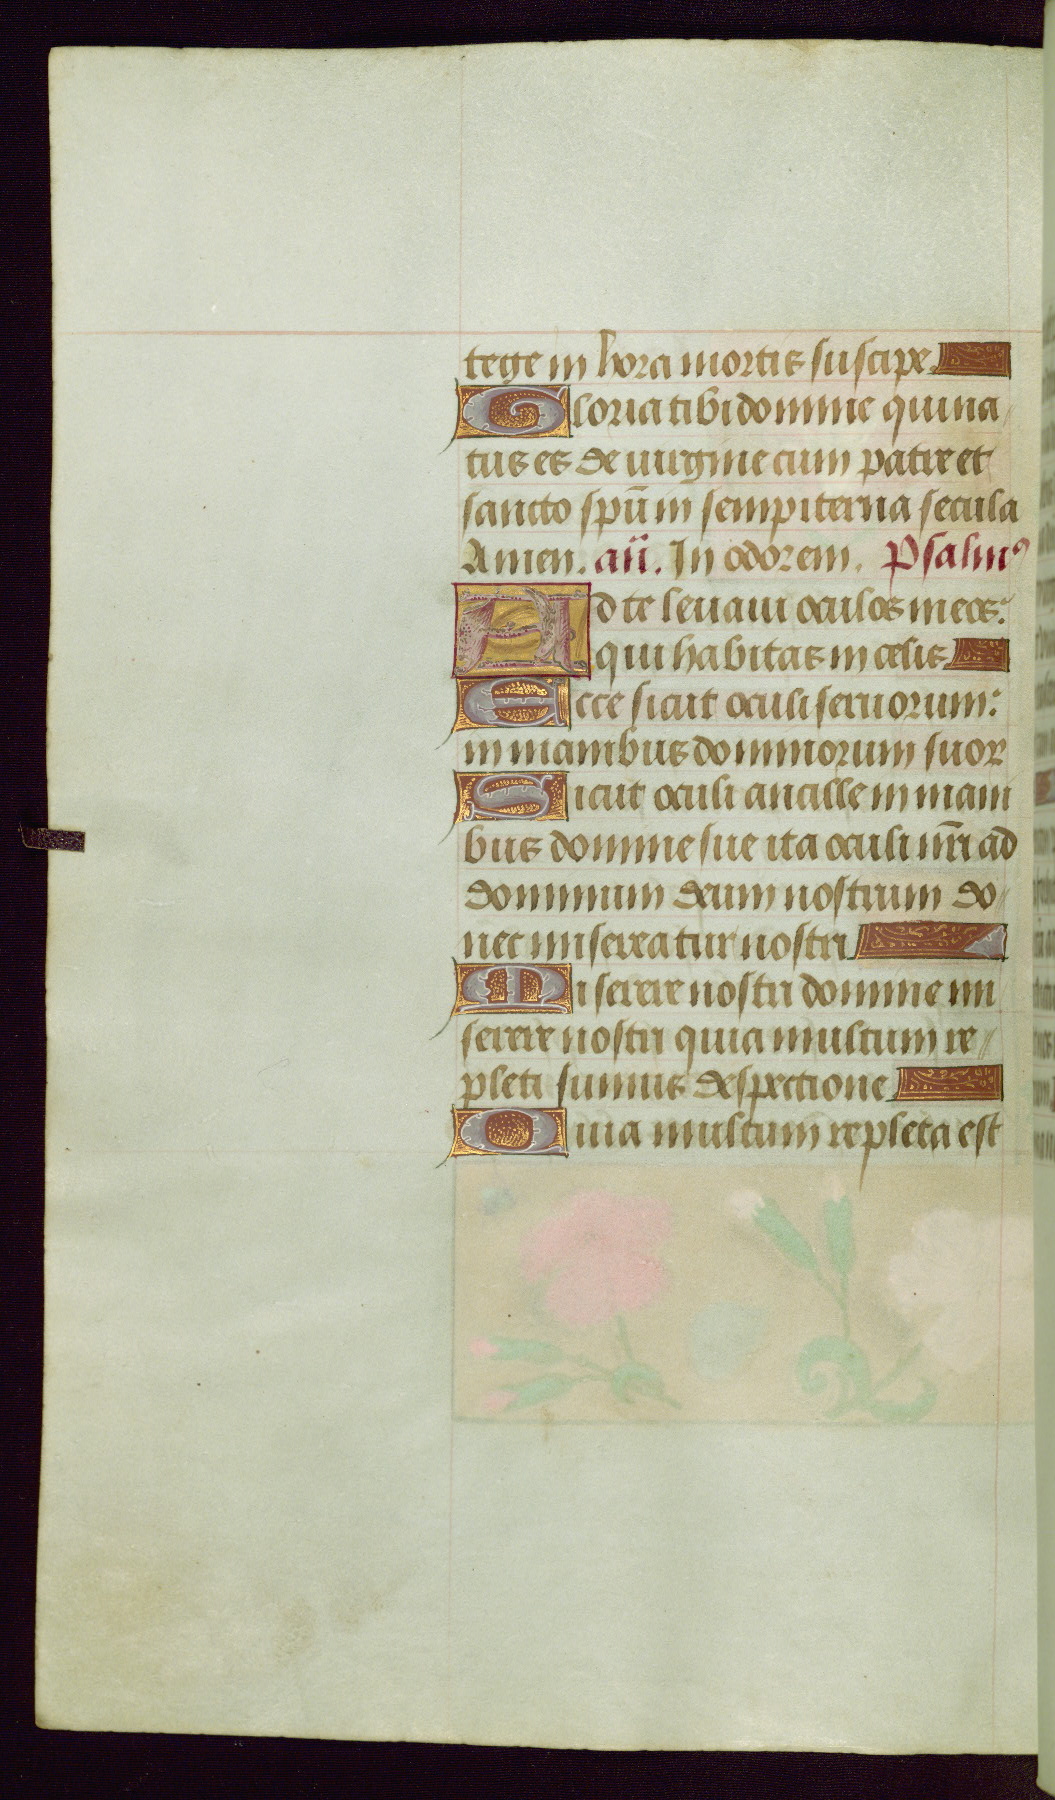 tege in hora mortis suscipe.
Gloria tibi domine qui na
tus es de uirgine cum patre et
sancto spū in sempiterna secula
Amen. añ. In odorem. Psalmꝰ
Ad te leuaui oculos meos:
qui habitas in celis
Ecce sicut oculi seruorum:
in manibus dominorum suoꝝ
Sicut oculi ancille in mani
bus domine sue ita oculi nr̄i ad
dominum deum nostrum do
nec misereatur nostri
Miserere nostri domine mi
serere nostri quia multum re
pleti sumus despectione
Quia multum repleta est